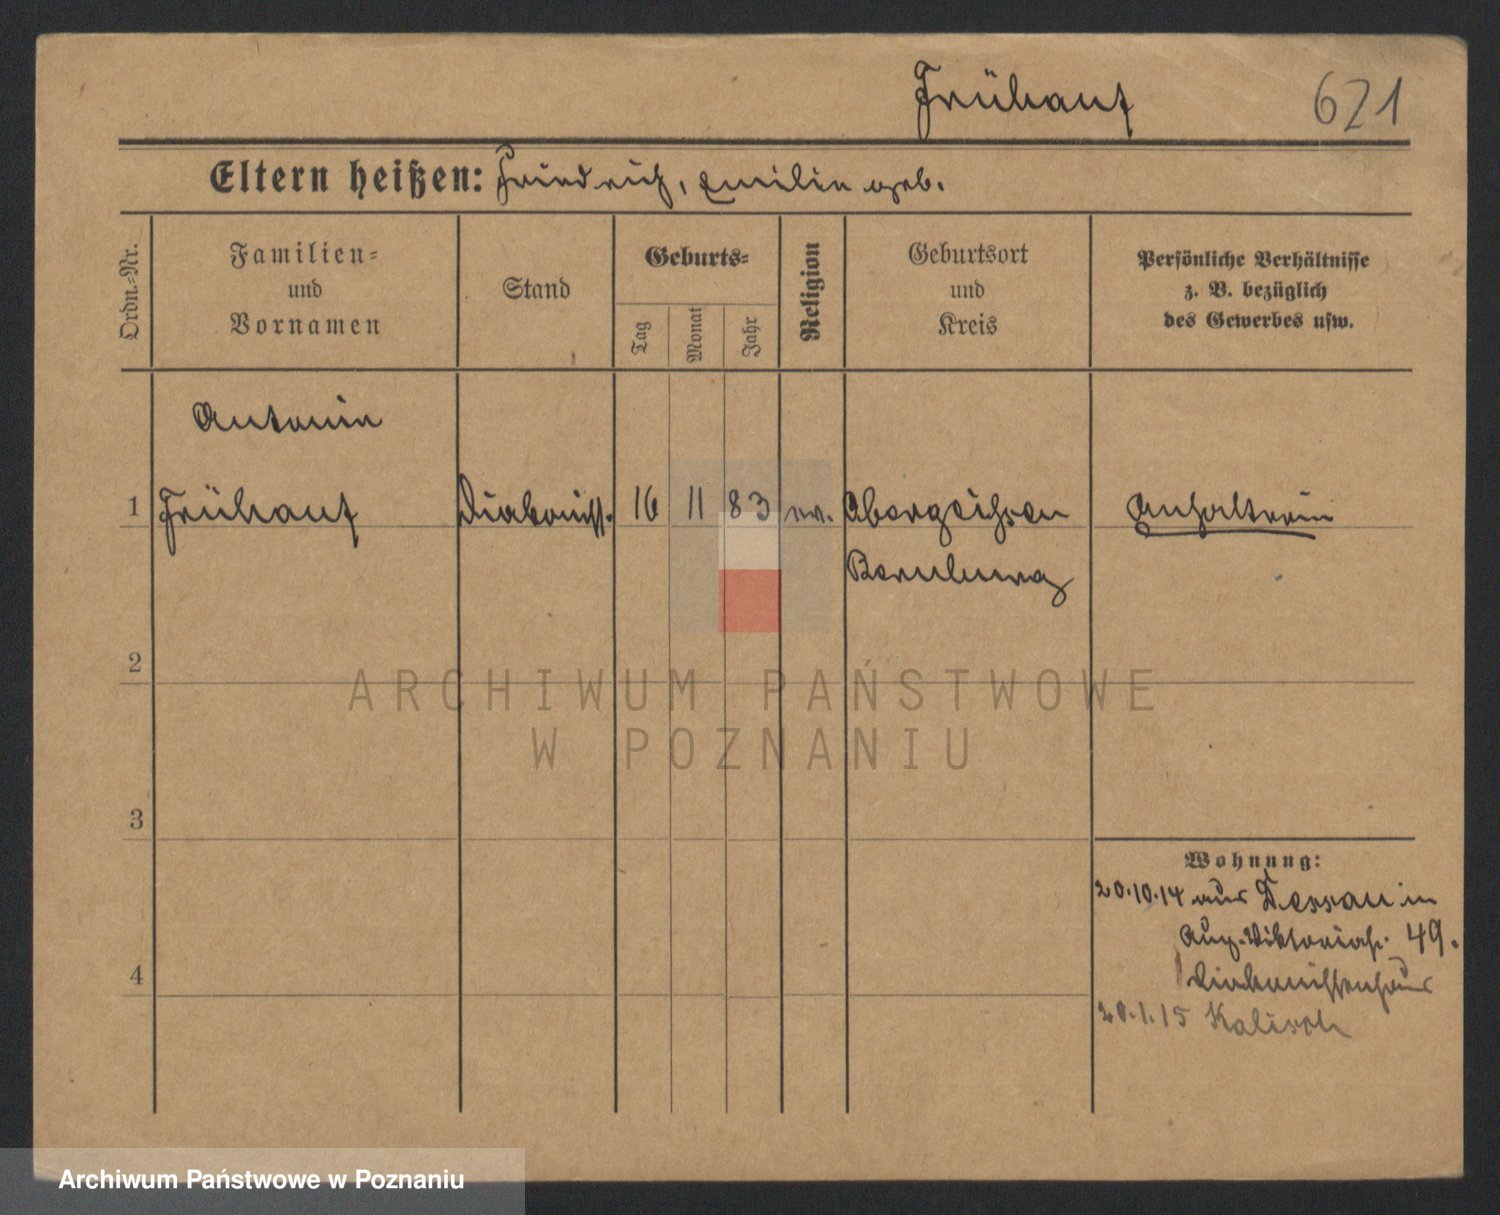 Frühauf 621
Eltern heißen: Friedrich, Emilie geb.
Ordn.-Nr.
Familien-
und
Vornamen
Stand
Geburts-
Tag
Monat
Jahr
Religion
Geburtsort
und
Kreis
Persönliche Verhältnisse
z. B. bezüglich
des Gewerbes usw.
Antonie
1 Frühauf Diakoniss. 16 11 83 ev. Anhalterin
Bernburg
2
3
4
Wohnung:
20.10.14 aus Dessau in
Aug. Viktoriast. 49.
Diakonissenhaus
20.1.15 Kalisch
ARCHIWUM PAŃSTWOWE
W POZNANIU
Archiwum Państwowe w Poznaniu